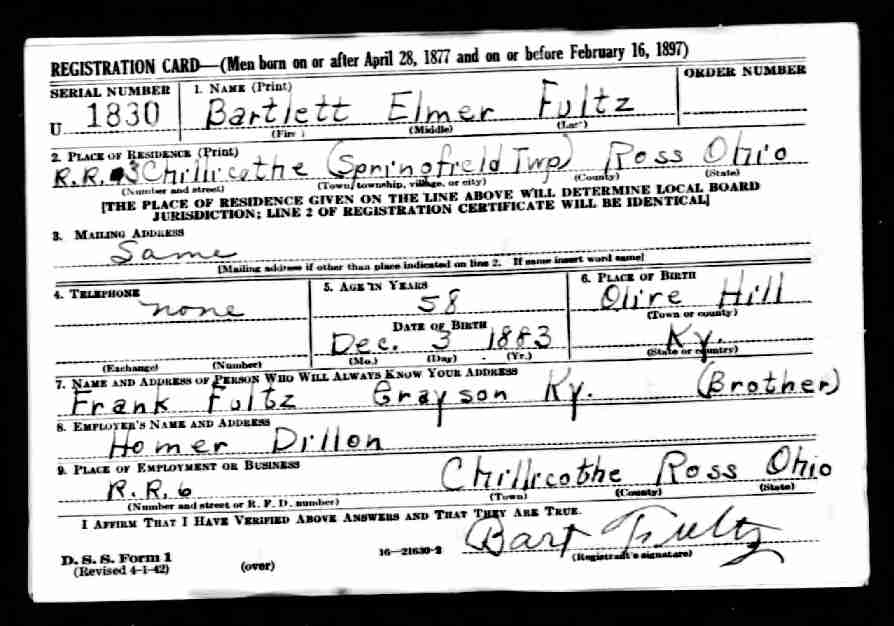 REGISTRATION CARD—(Men born on or after April 28, 1877 and on or before February 16, 1897)
SERIAL NUMBER 1. NAME (Print) ORDER NUMBER
U 1830 Bartlett Elmer Fultz
(First) (Middle) (Last)
2. PLACE OF RESIDENCE (Print)
R.R. #3 Chillicothe (Springfield Twp) Ross Ohio
(Number and street) (Town, township, village, or city) (County) (State)
[THE PLACE OF RESIDENCE GIVEN ON THE LINE ABOVE WILL DETERMINE LOCAL BOARD
JURISDICTION; LINE 2 OF REGISTRATION CERTIFICATE WILL BE IDENTICAL]
3. MAILING ADDRESS
Same
[Mailing address if other than place indicated on line 2. If same insert word same]
4. TELEPHONE 5. AGE IN YEARS 6. PLACE OF BIRTH
none 58 Olive Hill
(Town or county)
DATE OF BIRTH
Dec. 3 1883 Ky.
(Exchange) (Number) (Mo.) (Day) (Yr.) (State or country)
7. NAME AND ADDRESS OF PERSON WHO WILL ALWAYS KNOW YOUR ADDRESS
Frank Fultz Grayson Ky. (Brother)
8. EMPLOYER'S NAME AND ADDRESS
Homer Dillon
9. PLACE OF EMPLOYMENT OR BUSINESS
R.R. 6 Chillicothe Ross Ohio
(Number and street or R. F. D. number) (Town) (County) (State)
I AFFIRM THAT I HAVE VERIFIED ABOVE ANSWERS AND THAT THEY ARE TRUE.
Bart Fultz
D. S. S. Form 1 16—21630-2 (Registrant's signature)
(Revised 4-1-42) (over)